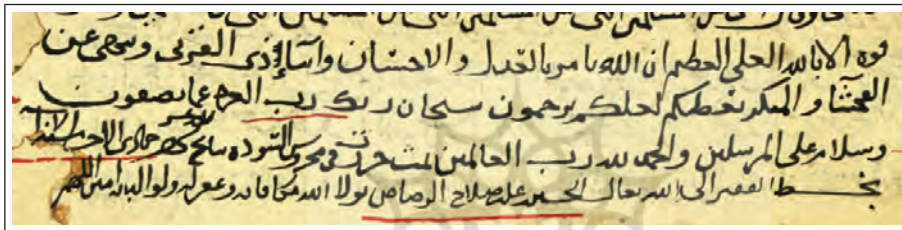 قوه الا بالله العلي العظيم ان الله يامر بالعدل والاحسان وايتاء ذي القربى وينهى عن
الفحشا والمنكر يعظكم لعلكم ترحمون سبحان ربك رب العزه عما يصفون
وسلام على المرسلين والحمد لله رب العالمين تمت في محروس السوده
بخط الفقير الى الله تعالى الحسين علي صلاح الرصاص تولا الله مكافاته وغفر له ولوالديه امين اللهم